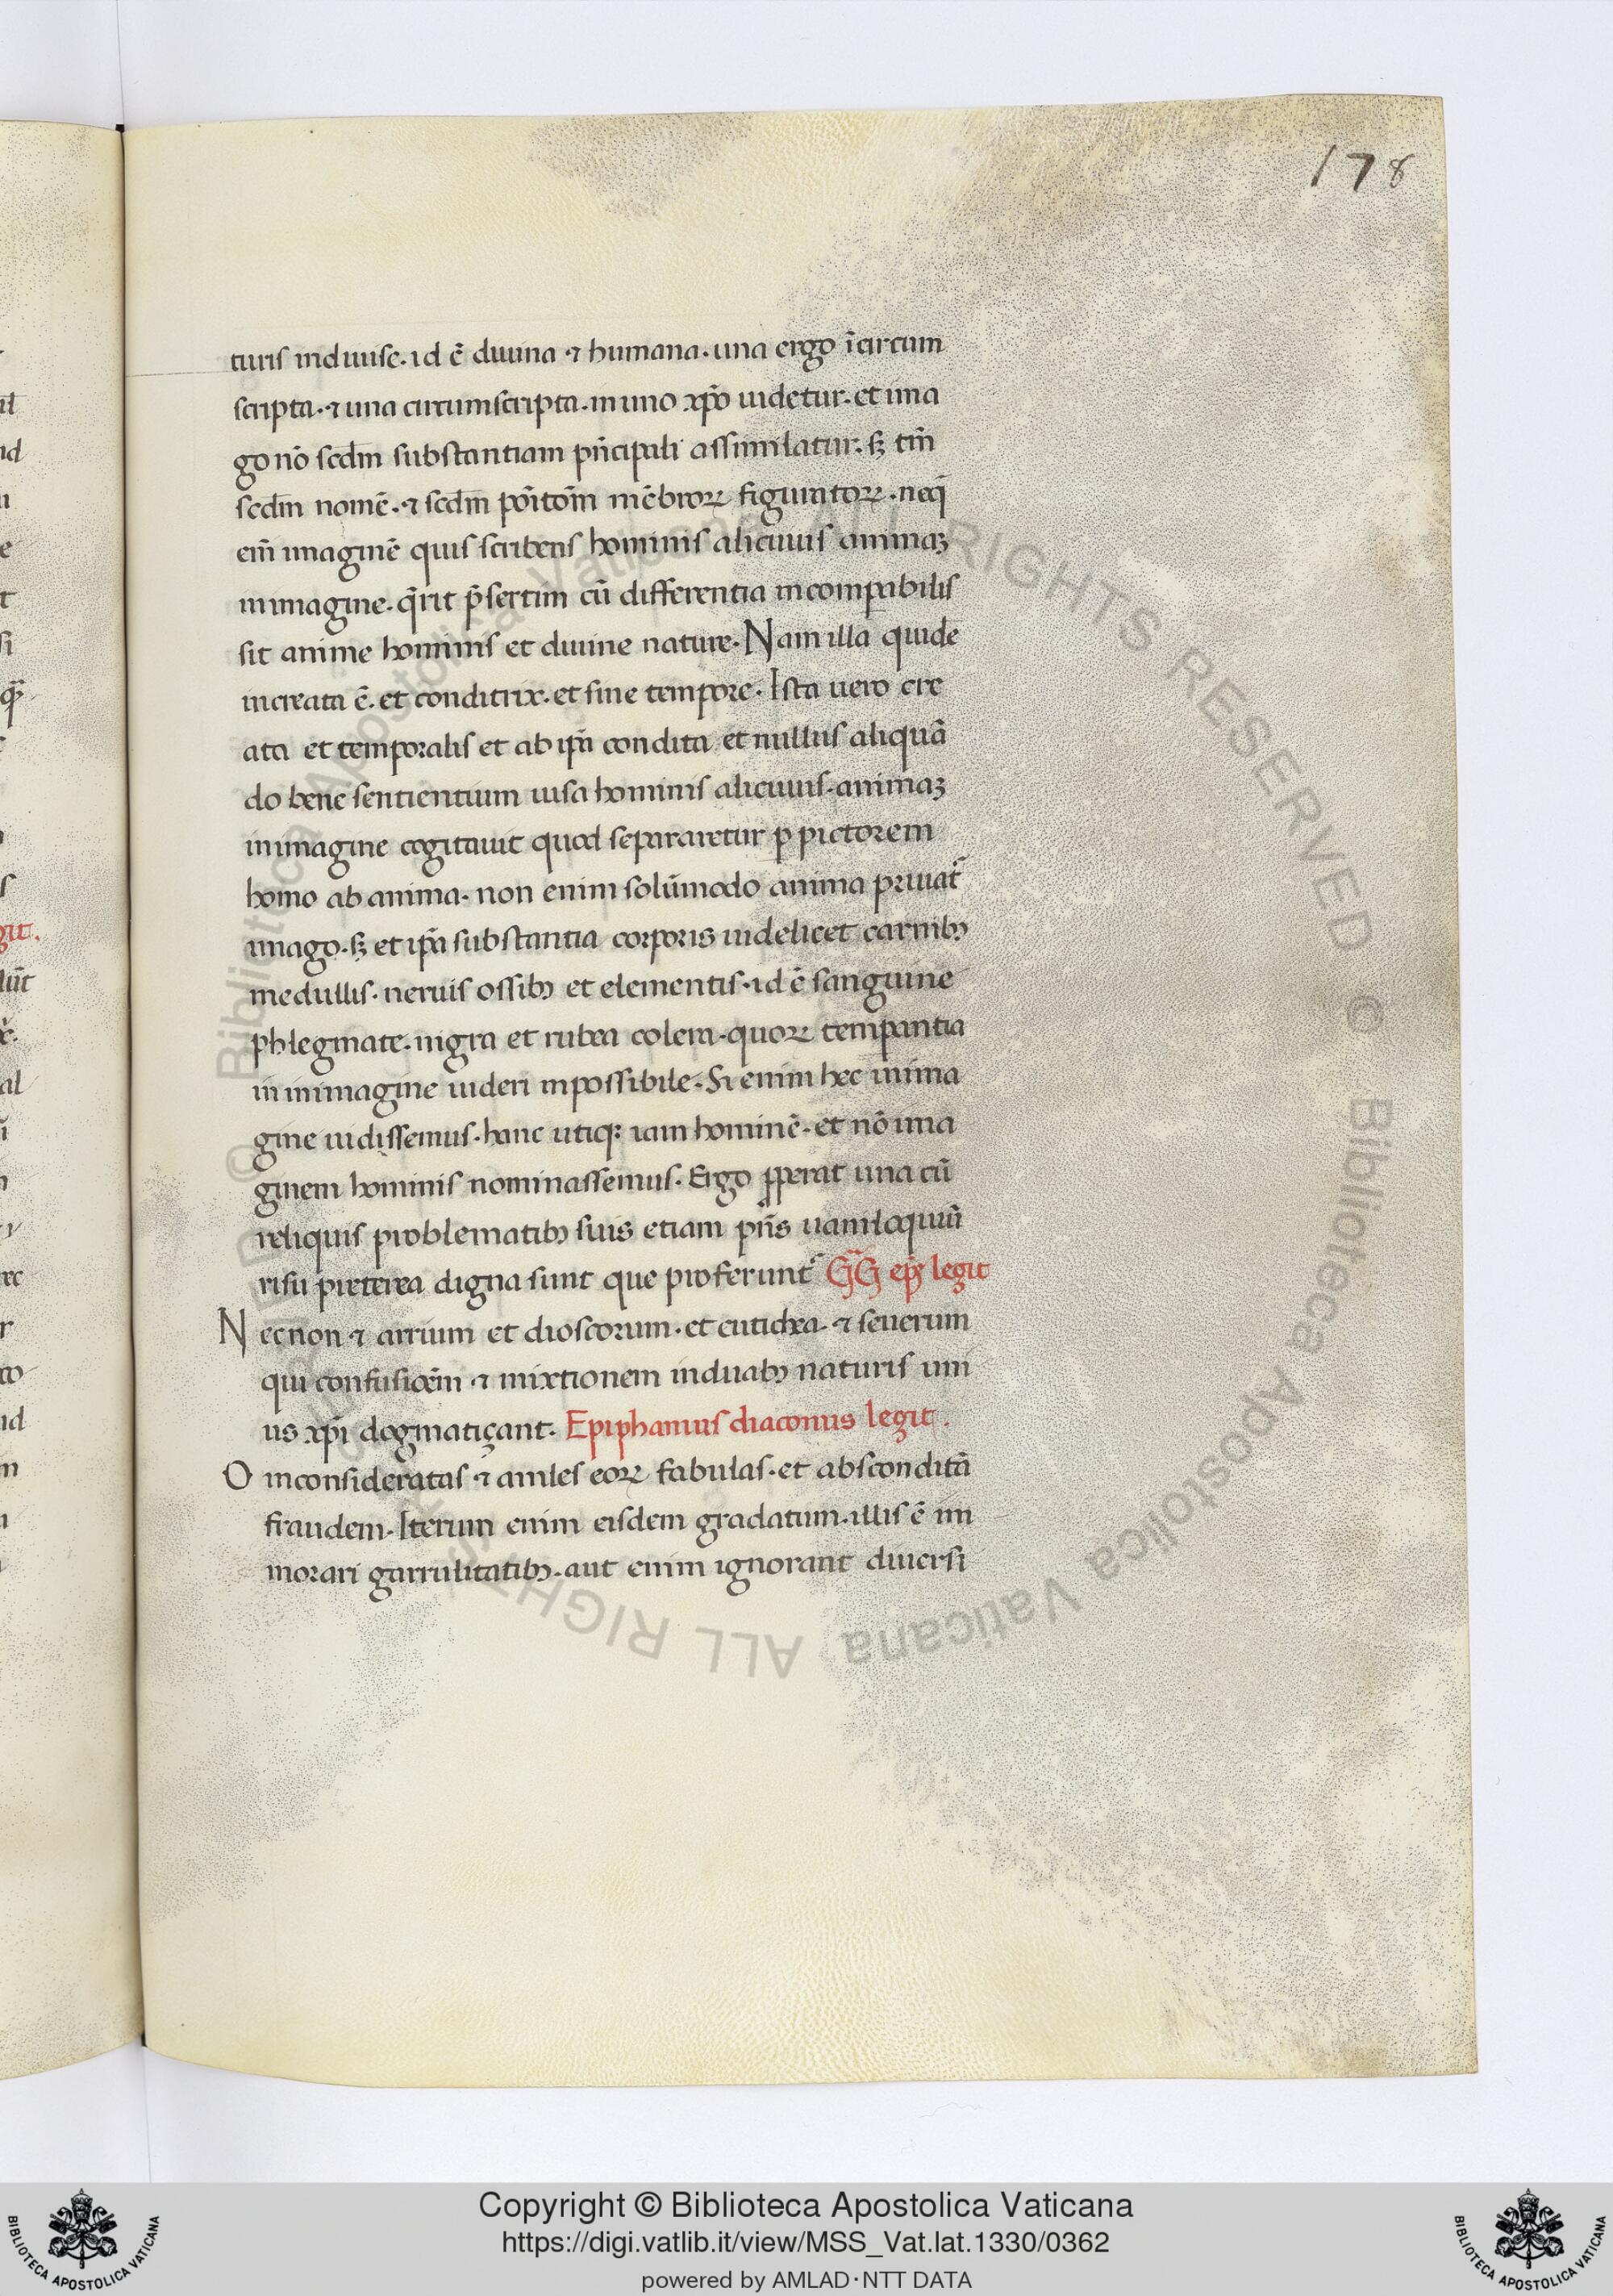 178
turis indiuise. id ē diuina ⁊ humana. una ergo īcircum
scripta. ⁊ una circumscripta. in uno xp̄o uidetur. et ima
go nō scd̄m substantiam pn̄cipali assimilatur. sꝫ tm̄
scd̄m nomē. ⁊ scd̄m poītōm mēbroꝝ figuratoꝝ. neq̄
em̄ imaginē quis scribens hominis alicuius animaꝫ
in imagine. q̄rit p̄sertim cū differentia incomꝑabilis
sit anime hominis et diuine nature. Nam illa quide
increata ē. et conditrix. et sine tempore. Ista uero cre
ata et temporalis et ab ip̄a condita et nullus aliquā
do bene sentientium uisa hominis alicuius. animaꝫ
in imagine cogitauit quod separaretur ꝑ pictorem
homo ab anima. non enim solūmodo anima priuat᷑
imago. sꝫ et ip̄a substantia corporis uidelicet carnibꝫ
medullis. neruis ossibꝫ et elementis. id ē sanguine
phlegmate. nigra et rubea colera. quoꝝ temꝑantia
in imagine uideri inpossibile. Si enim hec in ima
gine uidissemus. hanc utiqꝫ iam hominē. et nō ima
ginem hominis nominassemus. Ergo ꝓperat una cū
reliquis problematibꝫ suis etiam pn̄s uaniloquiū
risu preterea digna sunt que proferunt᷑ G̅G̅ ep̄s legit
Nec non ⁊ arrium et dioscorum. et eutichea. ⁊ seuerum
qui confusiōem ⁊ mixtionem in duabꝫ naturis uni
us xp̄i dogmatiçant. Epiphanius diaconus legit.
O inconsideratas ⁊ aniles eoꝝ fabulas. et absconditā
fraudem. Iterum enim eisdem gradatum. illis ē im
morari garrulitatibꝫ. aut enim ignorant diuersi
Copyright © Biblioteca Apostolica Vaticana
https://digi.vatlib.it/view/MSS_Vat.lat.1330/0362
powered by AMLAD·NTT DATA